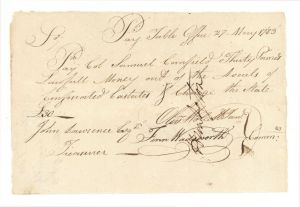 Sr, Pay Table Office 27 May 1783
Pay Col Samuel Canfield Thirty Pounds
Lawfull Money out of the Avails of
Confiscated Estates & Charge the State
£30—
John Lawrence Esqr Fenn Wadsworth Comm
Treasurer